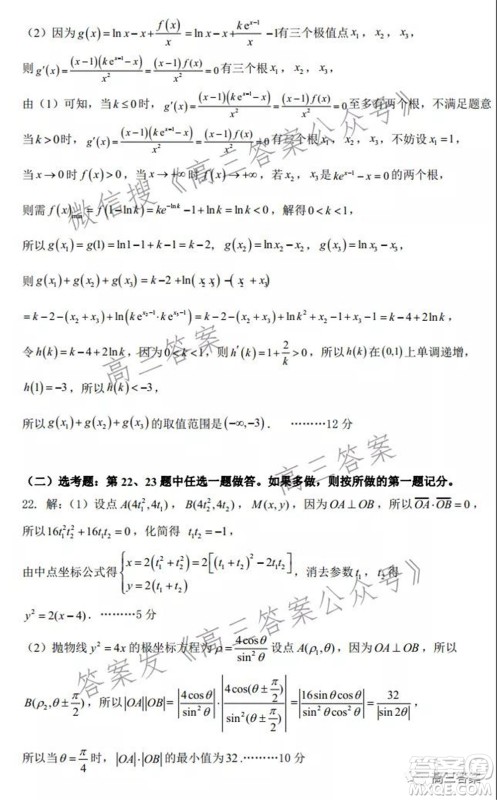 （2）因为 g(x)=ln x−x+f(x)/x=ln x−x+ke^{x−1}/x−1有三个极值点 x₁，x₂，x₃，
则 g′(x)=(x−1)(ke^{x−1}−x)/x²=(x−1)f(x)/x²=0有三个根 x₁，x₂，x₃，
由（1）可知，当 k≤0时，g′(x)=(x−1)(ke^{x−1}−x)/x²=(x−1)f(x)/x²=0至多有两个根，不满足题意
当 k>0时，g′(x)=(x−1)(ke^{x−1}−x)/x²=(x−1)f(x)/x²=0有三个根 x₁，x₂，x₃，不妨设 x₁=1，
当 x→0时 f(x)>0，当 x→+∞时 f(x)→+∞，若 x₂，x₃是 ke^{x−1}=x的两个根，
则需 f(x)min=f(1−ln k)=ke^{−ln k}−1+ln k=ln k<0，解得 0<k<1，
所以 g(x₁)=g(1)=ln1−1+k−1=k−2，g(x₂)=ln x₂−x₂，g(x₃)=ln x₃−x₃，
则 g(x₁)+g(x₂)+g(x₃)=k−2+ln(x₂x₃)−(x₂+x₃)
=k−2−(x₂+x₃)+ln(ke^{x₂−1}·ke^{x₃−1})=k−2−(x₂+x₃)+ln k²+x₂−1+x₃−1=k−4+2ln k，
令 h(k)=k−4+2ln k，因为 0<k<1，则 h′(k)=1+2/k>0，所以 h(k)在(0,1)上单调递增，
h(1)=−3，所以 h(k)<−3，
所以 g(x₁)+g(x₂)+g(x₃)的取值范围是(−∞,−3)．………12 分
（二）选考题：第 22、23 题中任选一题做答。如果多做，则按所做的第一题记分。
22. 解：（1）设点 A(4t₁²,4t₁)，B(4t₂²,4t₂)，M(x,y)，因为 OA⊥OB，所以 OA·OB=0，
所以16t₁²t₂²+16t₁t₂=0，化简得 t₁t₂=−1，
由中点坐标公式得{x=2(t₁²+t₂²)=2[(t₁+t₂)²−2t₁t₂]
y=2(t₁+t₂)，消去参数 t₁，t₂得
y²=2(x−4)．………5 分
（2）抛物线 y²=4x 的极坐标方程为 ρ=4cosθ/sin²θ 设点 A(ρ₁,θ)，因为 OA⊥OB，所以
B(ρ₂,θ±π/2)，所以|OA||OB|=|4cosθ/sin²θ·4cos(θ±π/2)/sin²(θ±π/2)|=|16sinθcosθ/sin²θcos²θ|=32/|sin2θ|
所以当 θ=π/4 时，|OA|·|OB|的最小值为32．………10 分
微信搜《高三答案公众号》
高三答案
高三答案
答案发《高三答案公众号》
高三答案
答案圈
MXQE.COM